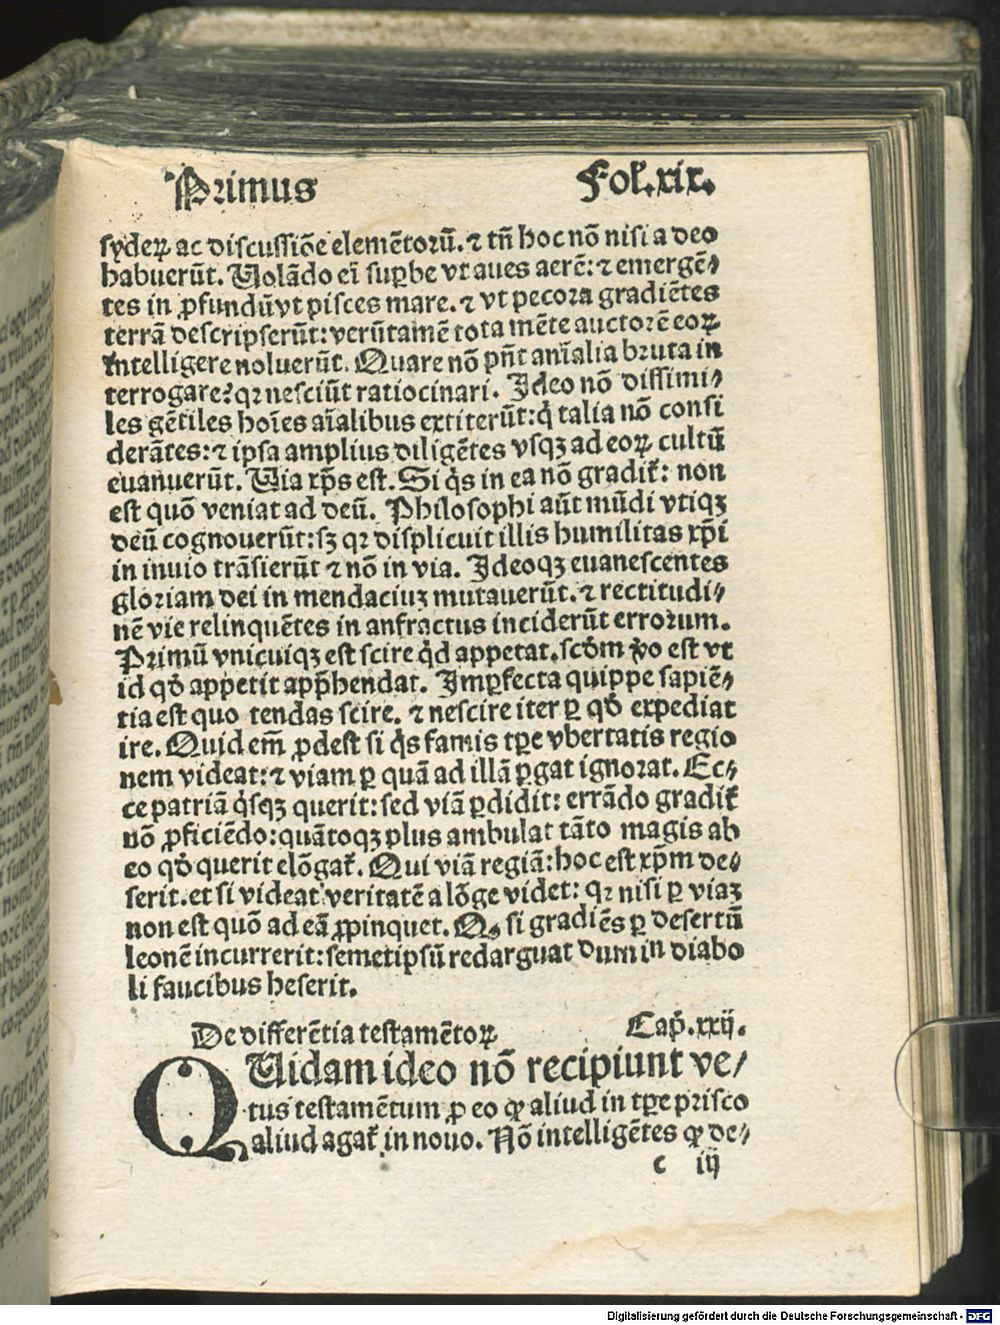 Primus Fol.xix.
syderꝝ ac discussiōe elemētorū. ⁊ tn̄ hoc nō nisi a deo
habuerūt. Uolādo em̄ suꝑbe vt aues aerē: ⁊ emergē⸗
tes in ꝓfundū vt pisces mare. ⁊ vt pecora gradiētes
terrā descripserūt: verūtamē tota mēte auctorē eoꝝ
intelligere noluerūt. Quare nō pn̄t aīalia bruta in
terrogare? qꝛ nesciūt ratiocinari. Ideo nō dissimi⸗
les gētiles hoīes aīalibus extiterūt: q̇ talia nō consi
derātes: ⁊ ipsa amplius diligētes vsqꝫ ad eoꝝ cultū
euanuerūt. Uia xp̄s est. Si q̇s in ea nō gradit᷑: non
est quō veniat ad deū. Philosophi aūt mūdi vtiqꝫ
deū cognouerūt: sꝫ qꝛ displicuit illis humilitas xp̄i
in inuio trāsierūt ⁊ nō in via. Ideoqꝫ euanescentes
gloriam dei in mendaciuꝫ mutauerūt. ⁊ rectitudi⸗
nē vie relinquētes in anfractus inciderūt errorum.
Primū vnicuiqꝫ est scire q̇d appetat. scd̄m v̊o est vt
id qd̄ appetit app̄hendat. Imꝑfecta quippe sapiē⸗
tia est quo tendas scire. ⁊ nescire iter ꝑ qd̄ expediat
ire. Quid em̄ ꝓdest si q̇s famis tꝑe vbertatis regio
nem videat: ⁊ viam ꝑ quā ad illā ꝑgat ignorat. Ec⸗
ce patriā q̇sqꝫ querit: sed viā ꝑdidit: errādo gradit᷑
nō ꝓficiēdo: quātoqꝫ plus ambulat tāto magis ab
eo qd̄ querit elōgat᷑. Qui viā regiā: hoc est xp̄m de⸗
serit. et si videat veritatē a lōge videt: qꝛ nisi ꝑ viaꝫ
non est quō ad eā ꝓpinquet. Q si gradiēs ꝑ desertū
leonē incurrerit: semetipsū redarguat dum in diabo
li faucibus heserit.
De differētia testamētoꝝ Cap̄. xxij.
QUidam ideo nō recipiunt ve⸗
tus testamētum ꝓ eo ꝙ aliud in tꝑe prisco
aliud agat᷑ in nouo. Nō intelligētes ꝙ de⸗
c iij
Digitalisierung gefördert durch die Deutsche Forschungsgemeinschaft - DFG